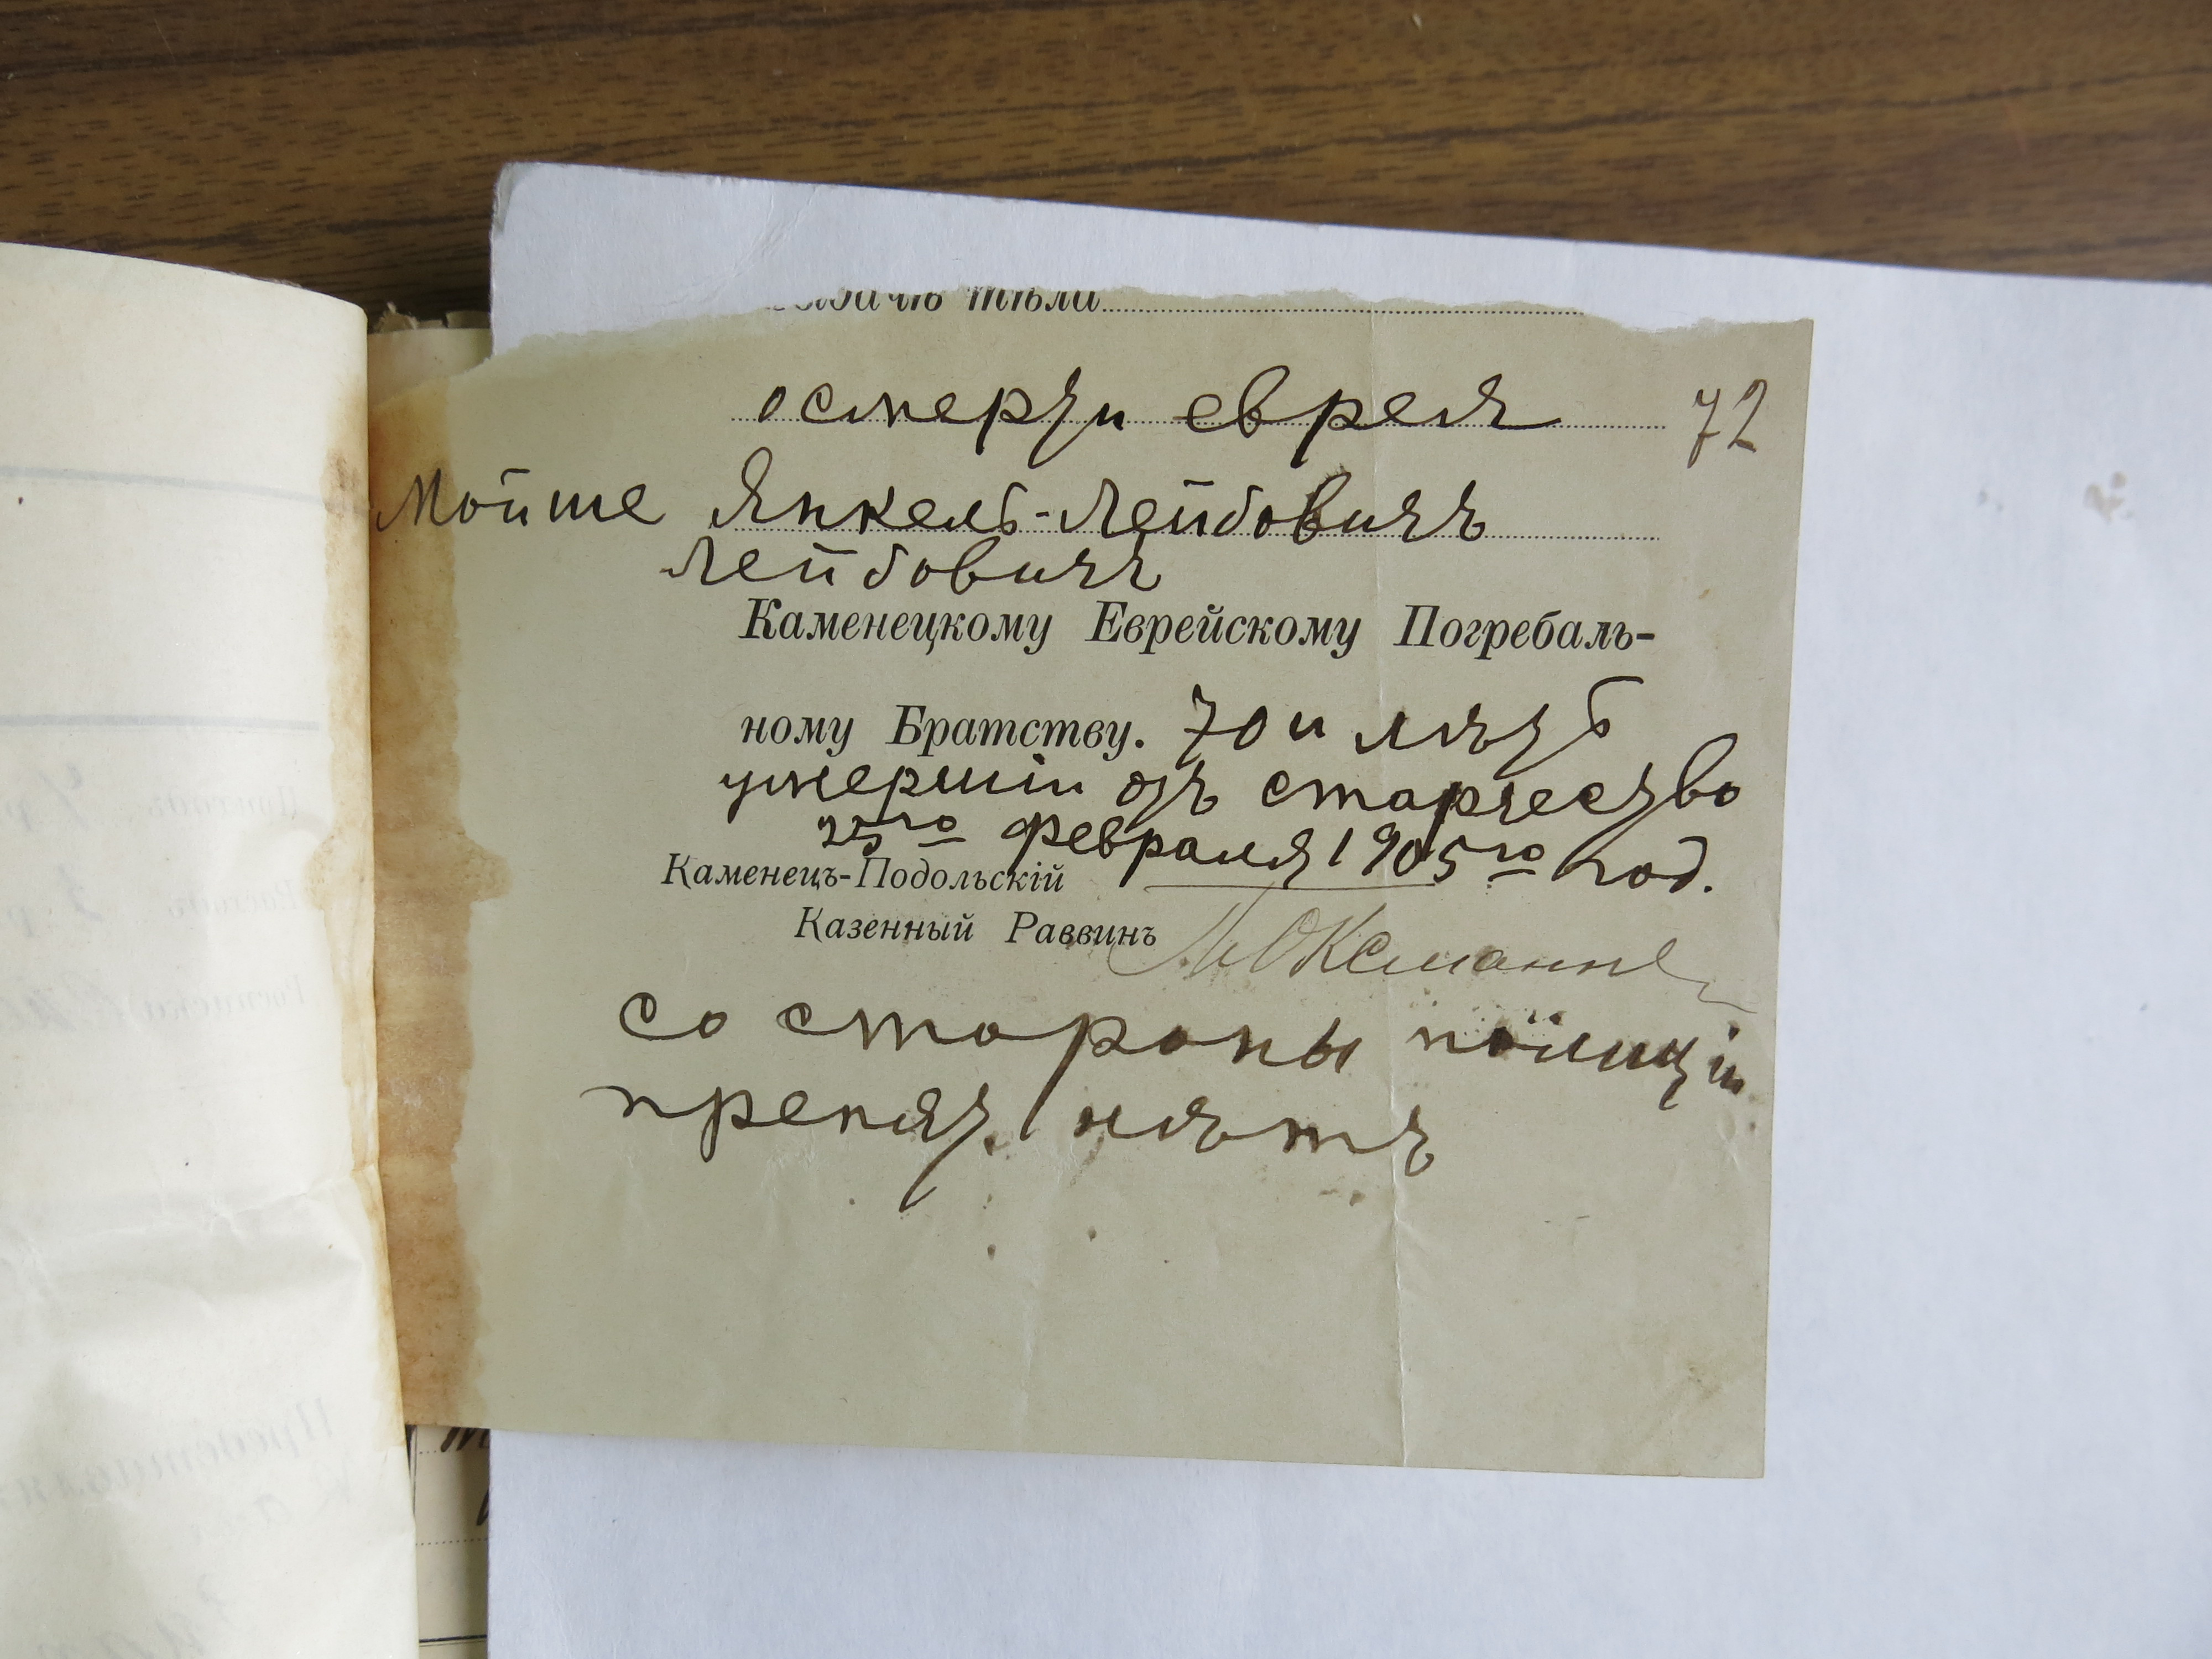 тѣла
о смерти еврея 72
Мойше Янкель-Лейбовичъ
Лейбовичъ
Каменецкому Еврейскому Погребаль-
ному Братству. 70и лѣтъ
умершiи отъ старчество
25го февраля 1905го год.
Каменецъ-Подольскiй
Казенный Раввинъ
со стороны полицiи
препят. нѣтъ